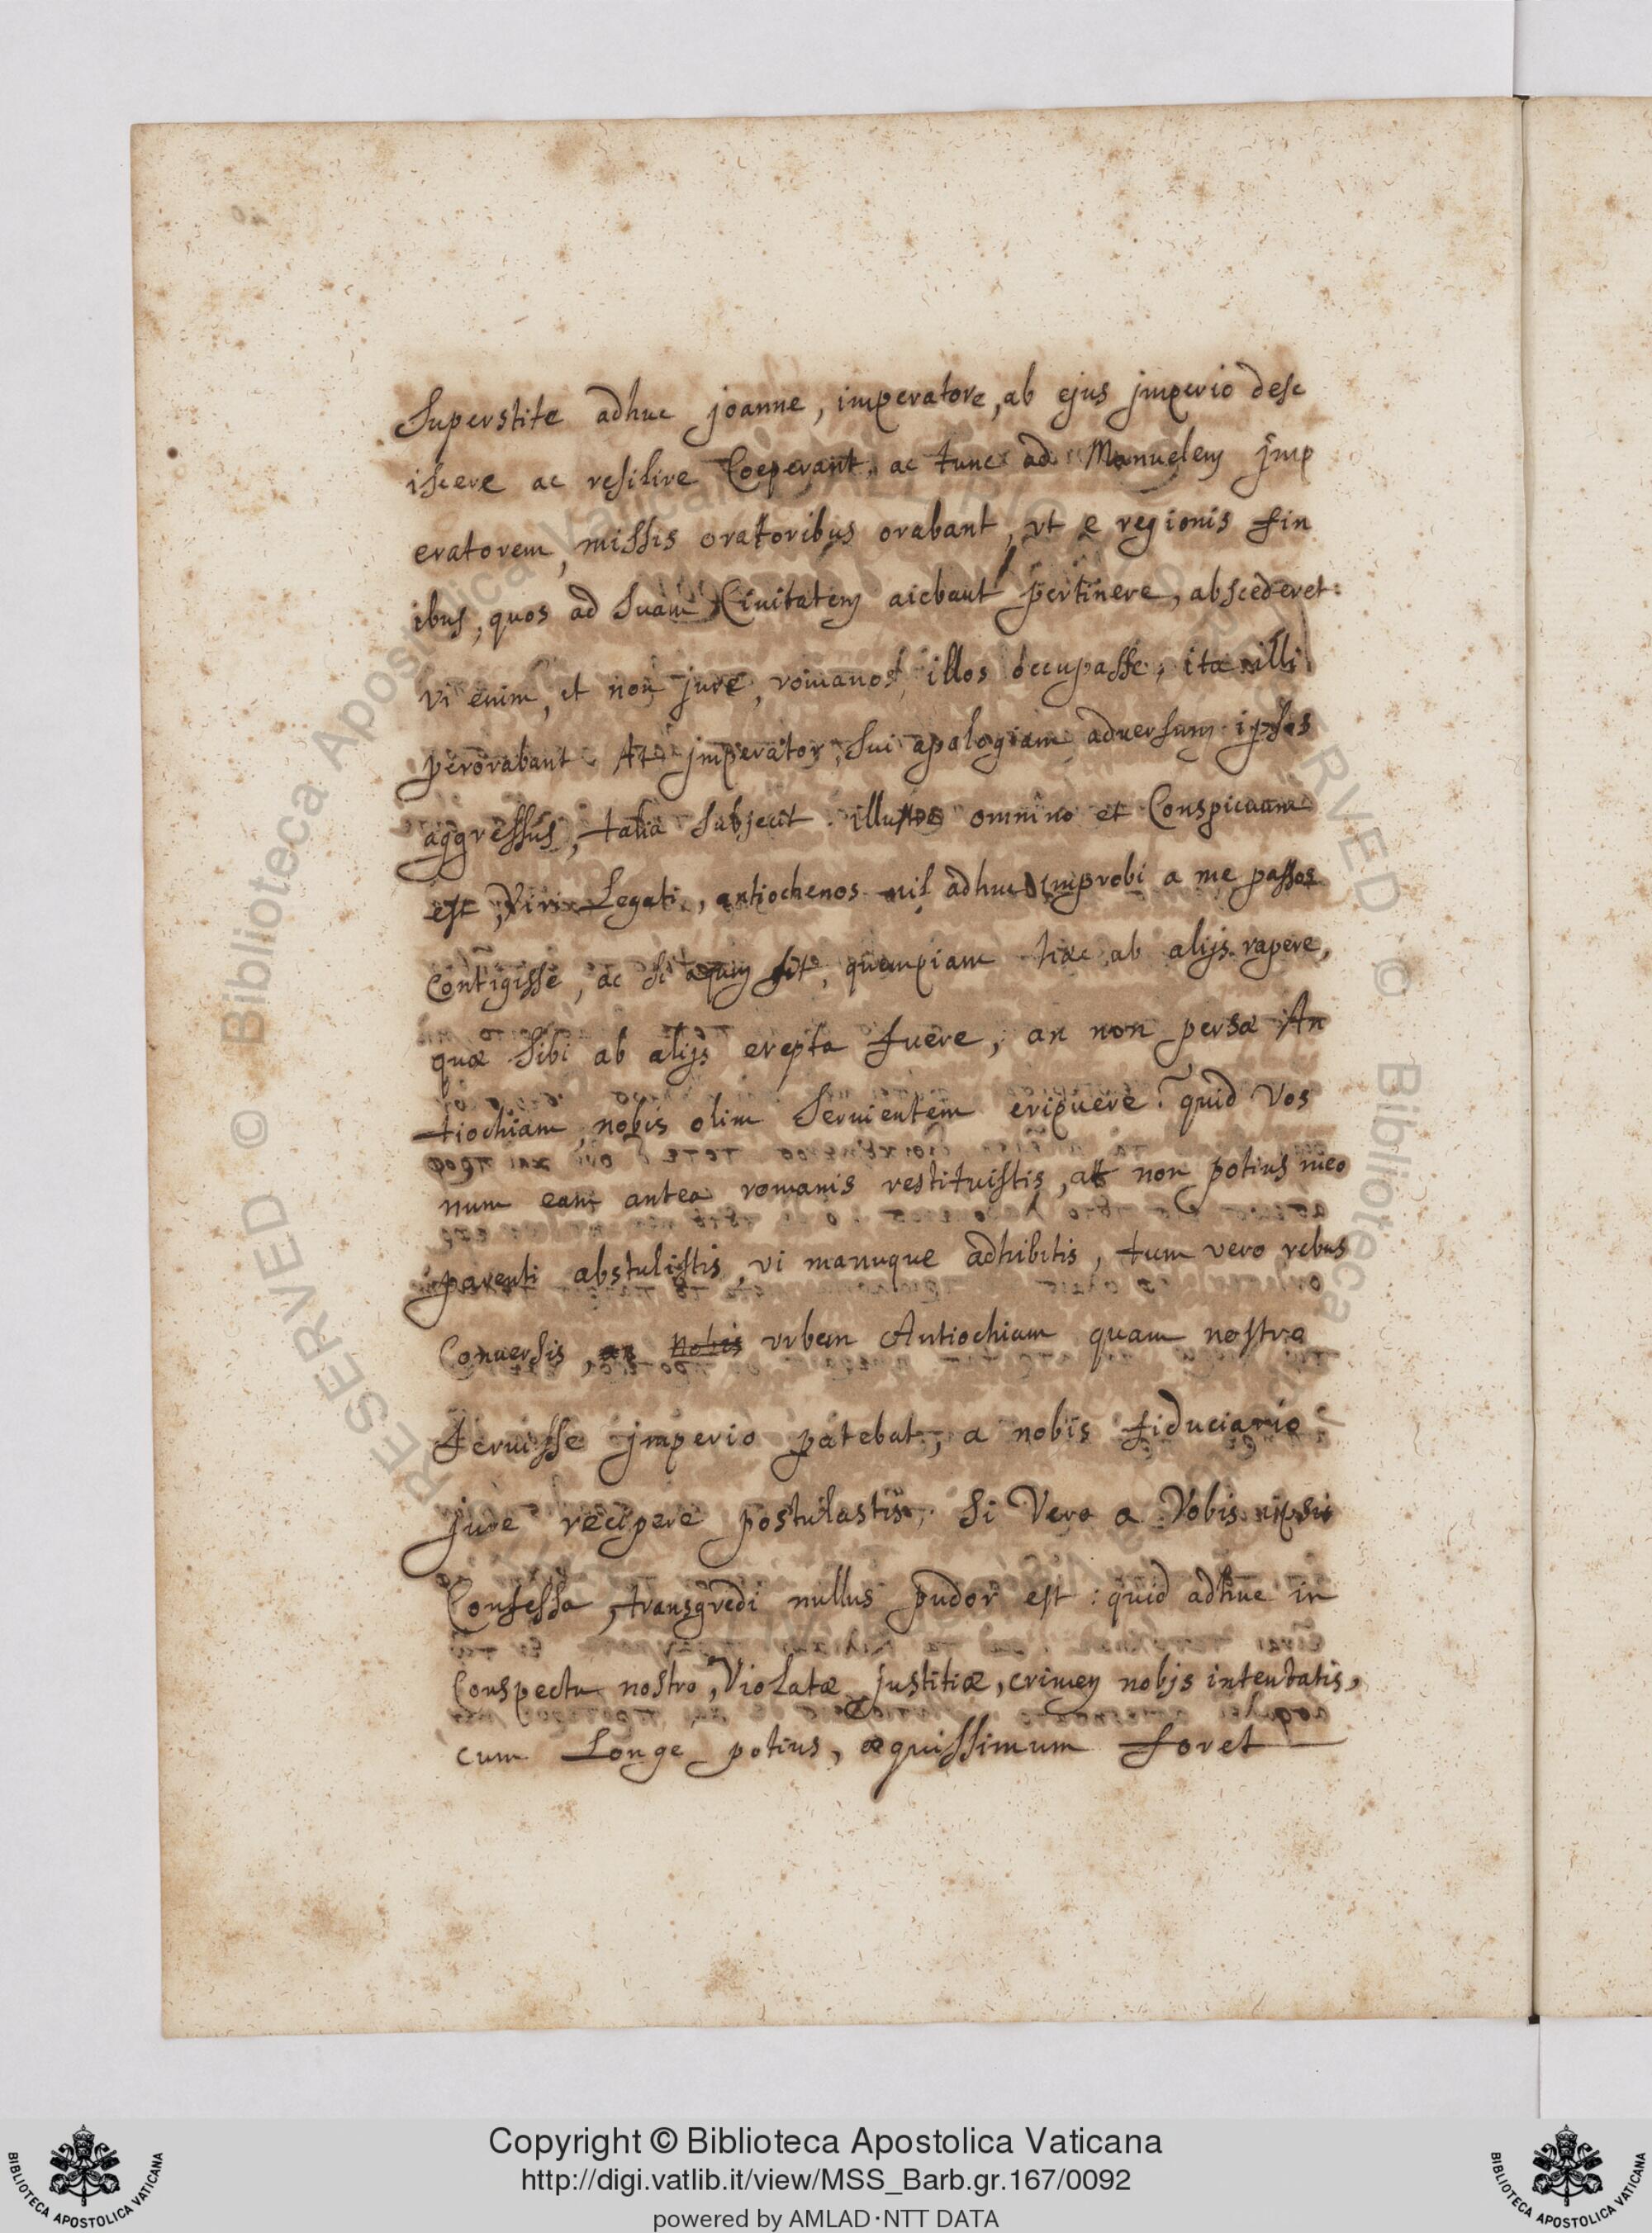 Superstite adhuc joanne, imperatore, ab ejus jmperio desc
iscere ac resilire Coeperant, ac tunc ad Manuelem jmp
eratorem, missis oratoribus orabant, vt e regionis fin
ibus, quos ad suam Ciuitatem aiebant pertinere, abscederet:
vi enim, et non jure, romanos, illos occupasse; ita illi
perorabant At jmperator, sui apalogiam aduersum ipsos
aggressus, talia subjecit. omnino et Conspicuum
est, Viri Legati, antiochenos nil adhuc improbi a me passos
Contigisse, ac si aequm sit, quempiam haec ab alijs rapere,
quæ sibi ab alijs erepta fuere, an non persæ An
tiochiam, nobis olim seruientem eripuere? quid Vos
num eam antea romanis restituistis, non potius meo
parenti abstulistis, vi manuque adhibitis, tum vero rebus
Conuersis, an nobis vrbem Antiochiam quam nostro
seruisse jmperio patebat, a nobis fiduciario
jure recipere postulastis. Si Vero a Vobis
Confessa, transgredi nullus pudor est: quid adhuc in
Conspectu nostro, Violatæ justitiæ, crimen nobjs intentatis,
cum Longe potius, æquissimum foret
Copyright © Biblioteca Apostolica Vaticana
http://digi.vatlib.it/view/MSS_Barb.gr.167/0092
powered by AMLAD·NTT DATA
BIBLIOTECA APOSTOLICA VATICANA
BIBLIOTECA APOSTOLICA VATICANA